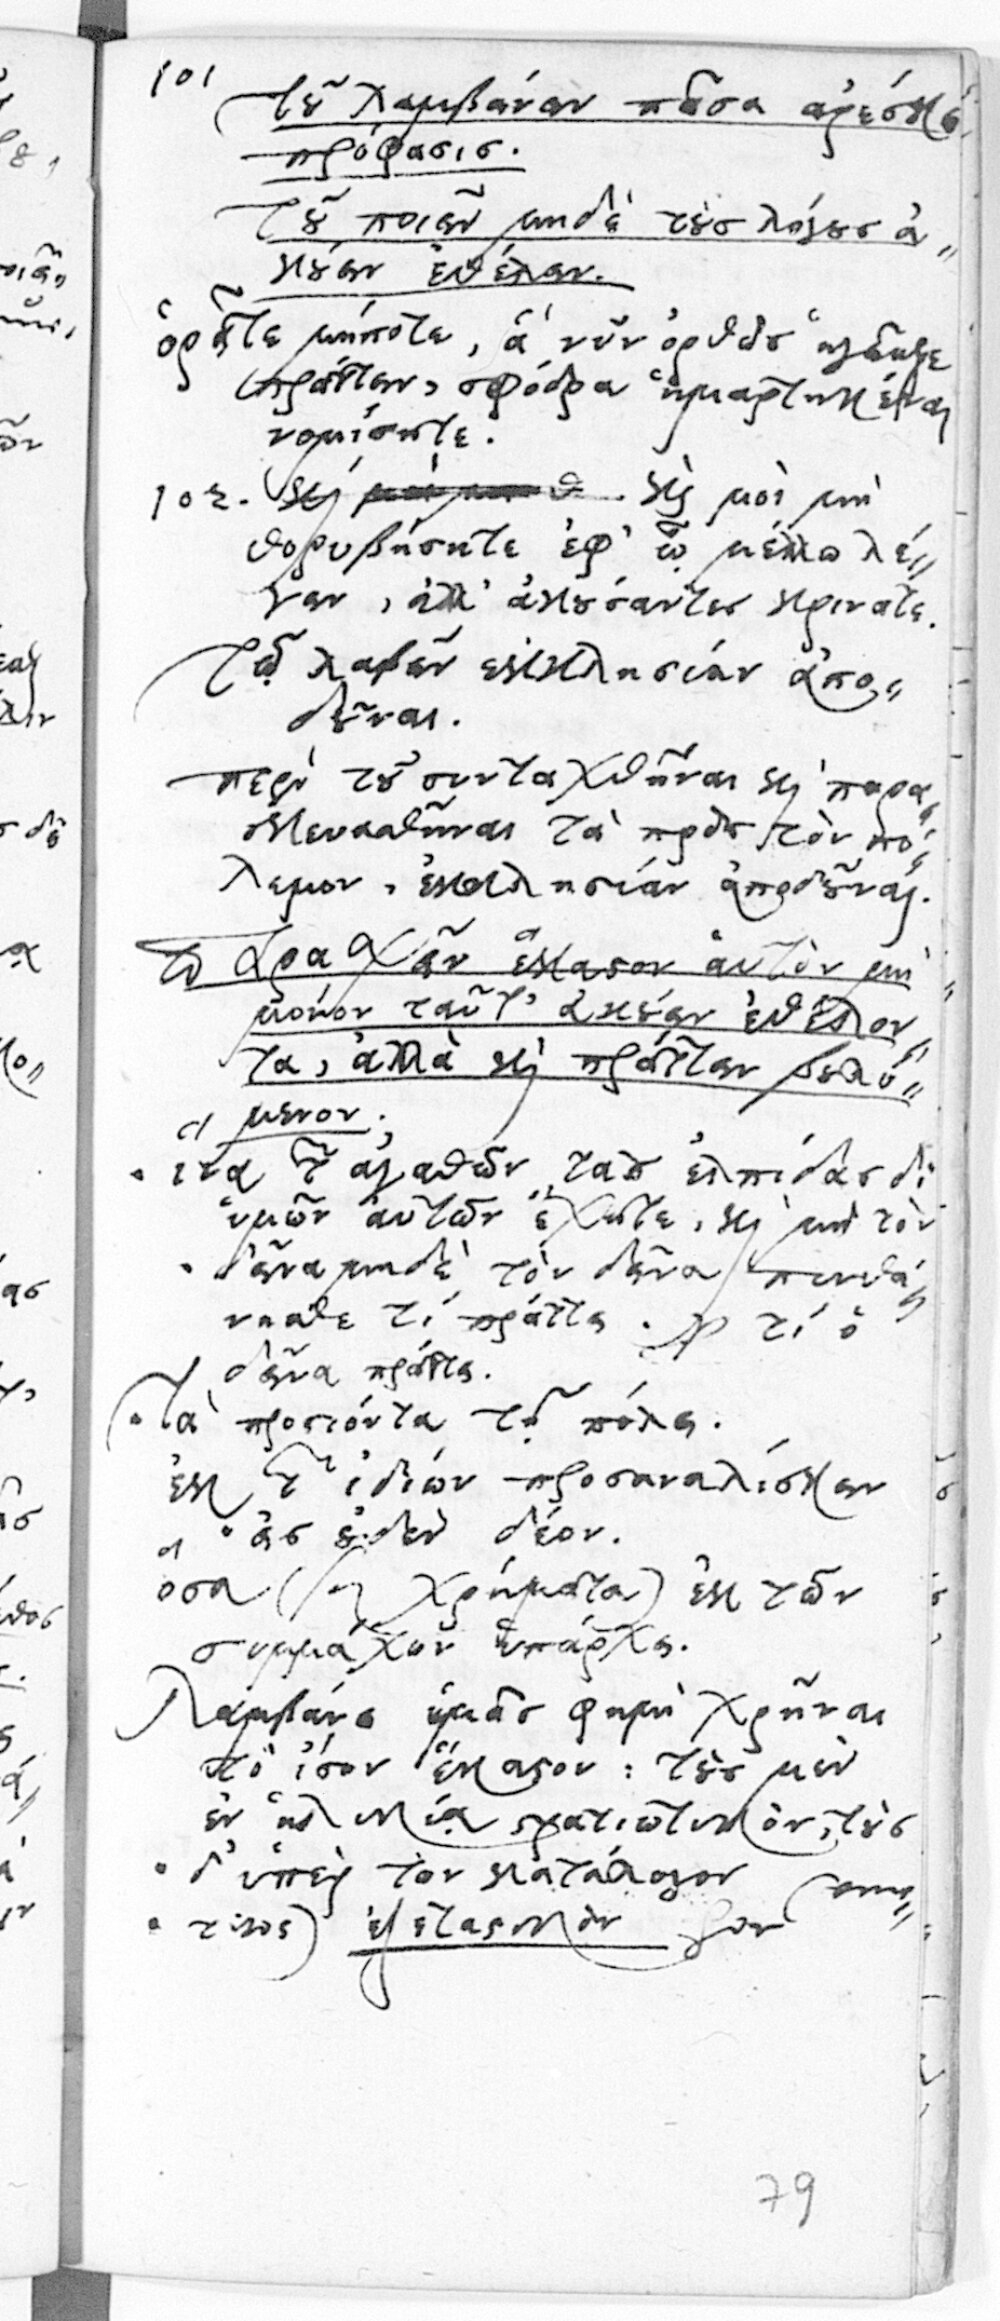 101 τοῦ λαμβάνειν πᾶσα ἀρέσκει
πρόφασις.
τοῦ ποιεῖν μηδὲ τοὺς λόγους ἀ„
κούειν ἐθέλειν.
ὁρᾶτε μήποτε, ἃ νῦν ὀρθῶς ἡγεῖσθε
πράττειν, σφόδρα ἡμαρτηκέναι
νομίσητε.
102. καὶ καὶ μοι μὴ
θορυβήσητε ἐφ' ᾧ μέλλω λέ„
γειν, ἀλλ' ἀκούσαντες κρίνατε.
τῷ λαβεῖν ἐκκλησίαν ἀπο„
δοῦναι.
περὶ τοῦ συνταχθῆναι καὶ παρα„
σκευασθῆναι τὰ πρὸς τὸν πό„
λεμον, ἐκκλησίαν ἀποδοῦναι.
παρασχεῖν ἕκαστον αὑτὸν μὴ „
μόνον ταῦτ' ἀκούειν ἐθέλον„
τα, ἀλλὰ καὶ πράττειν βουλό„
μενον.
ἵνα τῶν ἀγαθῶν τὰς ἐλπίδας δι'
ὑμῶν αὐτῶν ἔχητε, καὶ μὴ τὸν
δεῖνα μηδὲ τὸν δεῖνα πυνθά„
νησθε τί πράττει. τί ὁ
δεῖνα πράττει.
τὰ προσιόντα τῇ πόλει.
ἐκ τῶν ἰδίων προσαναλίσκειν
εἰς οὐδὲν δέον.
ὅσα (χρήματα) ἐκ τῶν
συμμάχων ὑπάρχει.
λαμβάνειν ὑμᾶς φημὶ χρῆναι
τὸ ἴσον ἕκαστον: τοὺς μὲν
ἐν ἡλικίᾳ στρατιωτικὸν, τοὺς
δ' ὑπὲρ τὸν κατάλογον
ἐξεταστικὸν
79